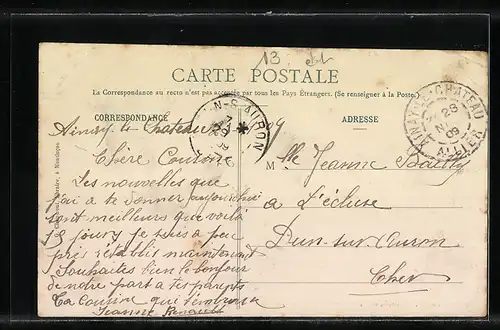 13
CARTE POSTALE
La Correspondance au recto n'est pas acceptée par tous les Pays Étrangers. (Se renseigner à la Poste.)
CORRESPONDANCE
ADRESSE
Ainay le Château 09
Chère Cousine
Les nouvelles que
j'ai à te donner aujourd'hui
sont meilleures que voilà
jours je suis à peu
près rétablit maintenant
Souhaites bien le bonjour
de notre part à tes parents
Ta Cousine qui t'embrasse
Jeanne Renault
M lle Jeanne
à L'écluse
Dun-sur-Auron
Cher
N-S-AURON
AINAY-LE-CHATEAU
28
09
ALLIER